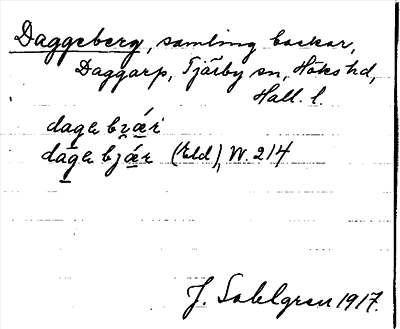 Daggeberg, samling backar,
Daggarp, Tjärby sn, Höks hd,
Hall. l.
dagabjær
dagabjær (Eld), W. 214
J. Sahlgren 1917.